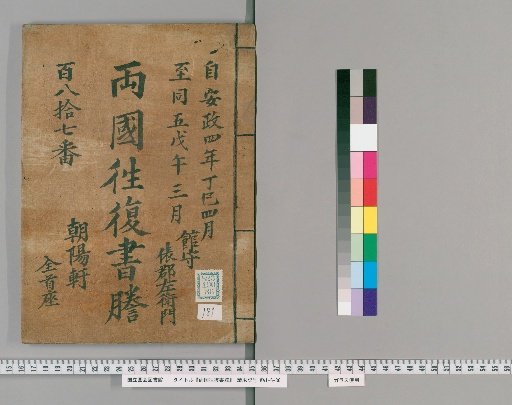 自安政四年丁巳四月
至同五戊午三月
館守
俵郡左衛門
両國往復書謄
百八拾七番
朝陽軒
全首座
187
ガラス使用